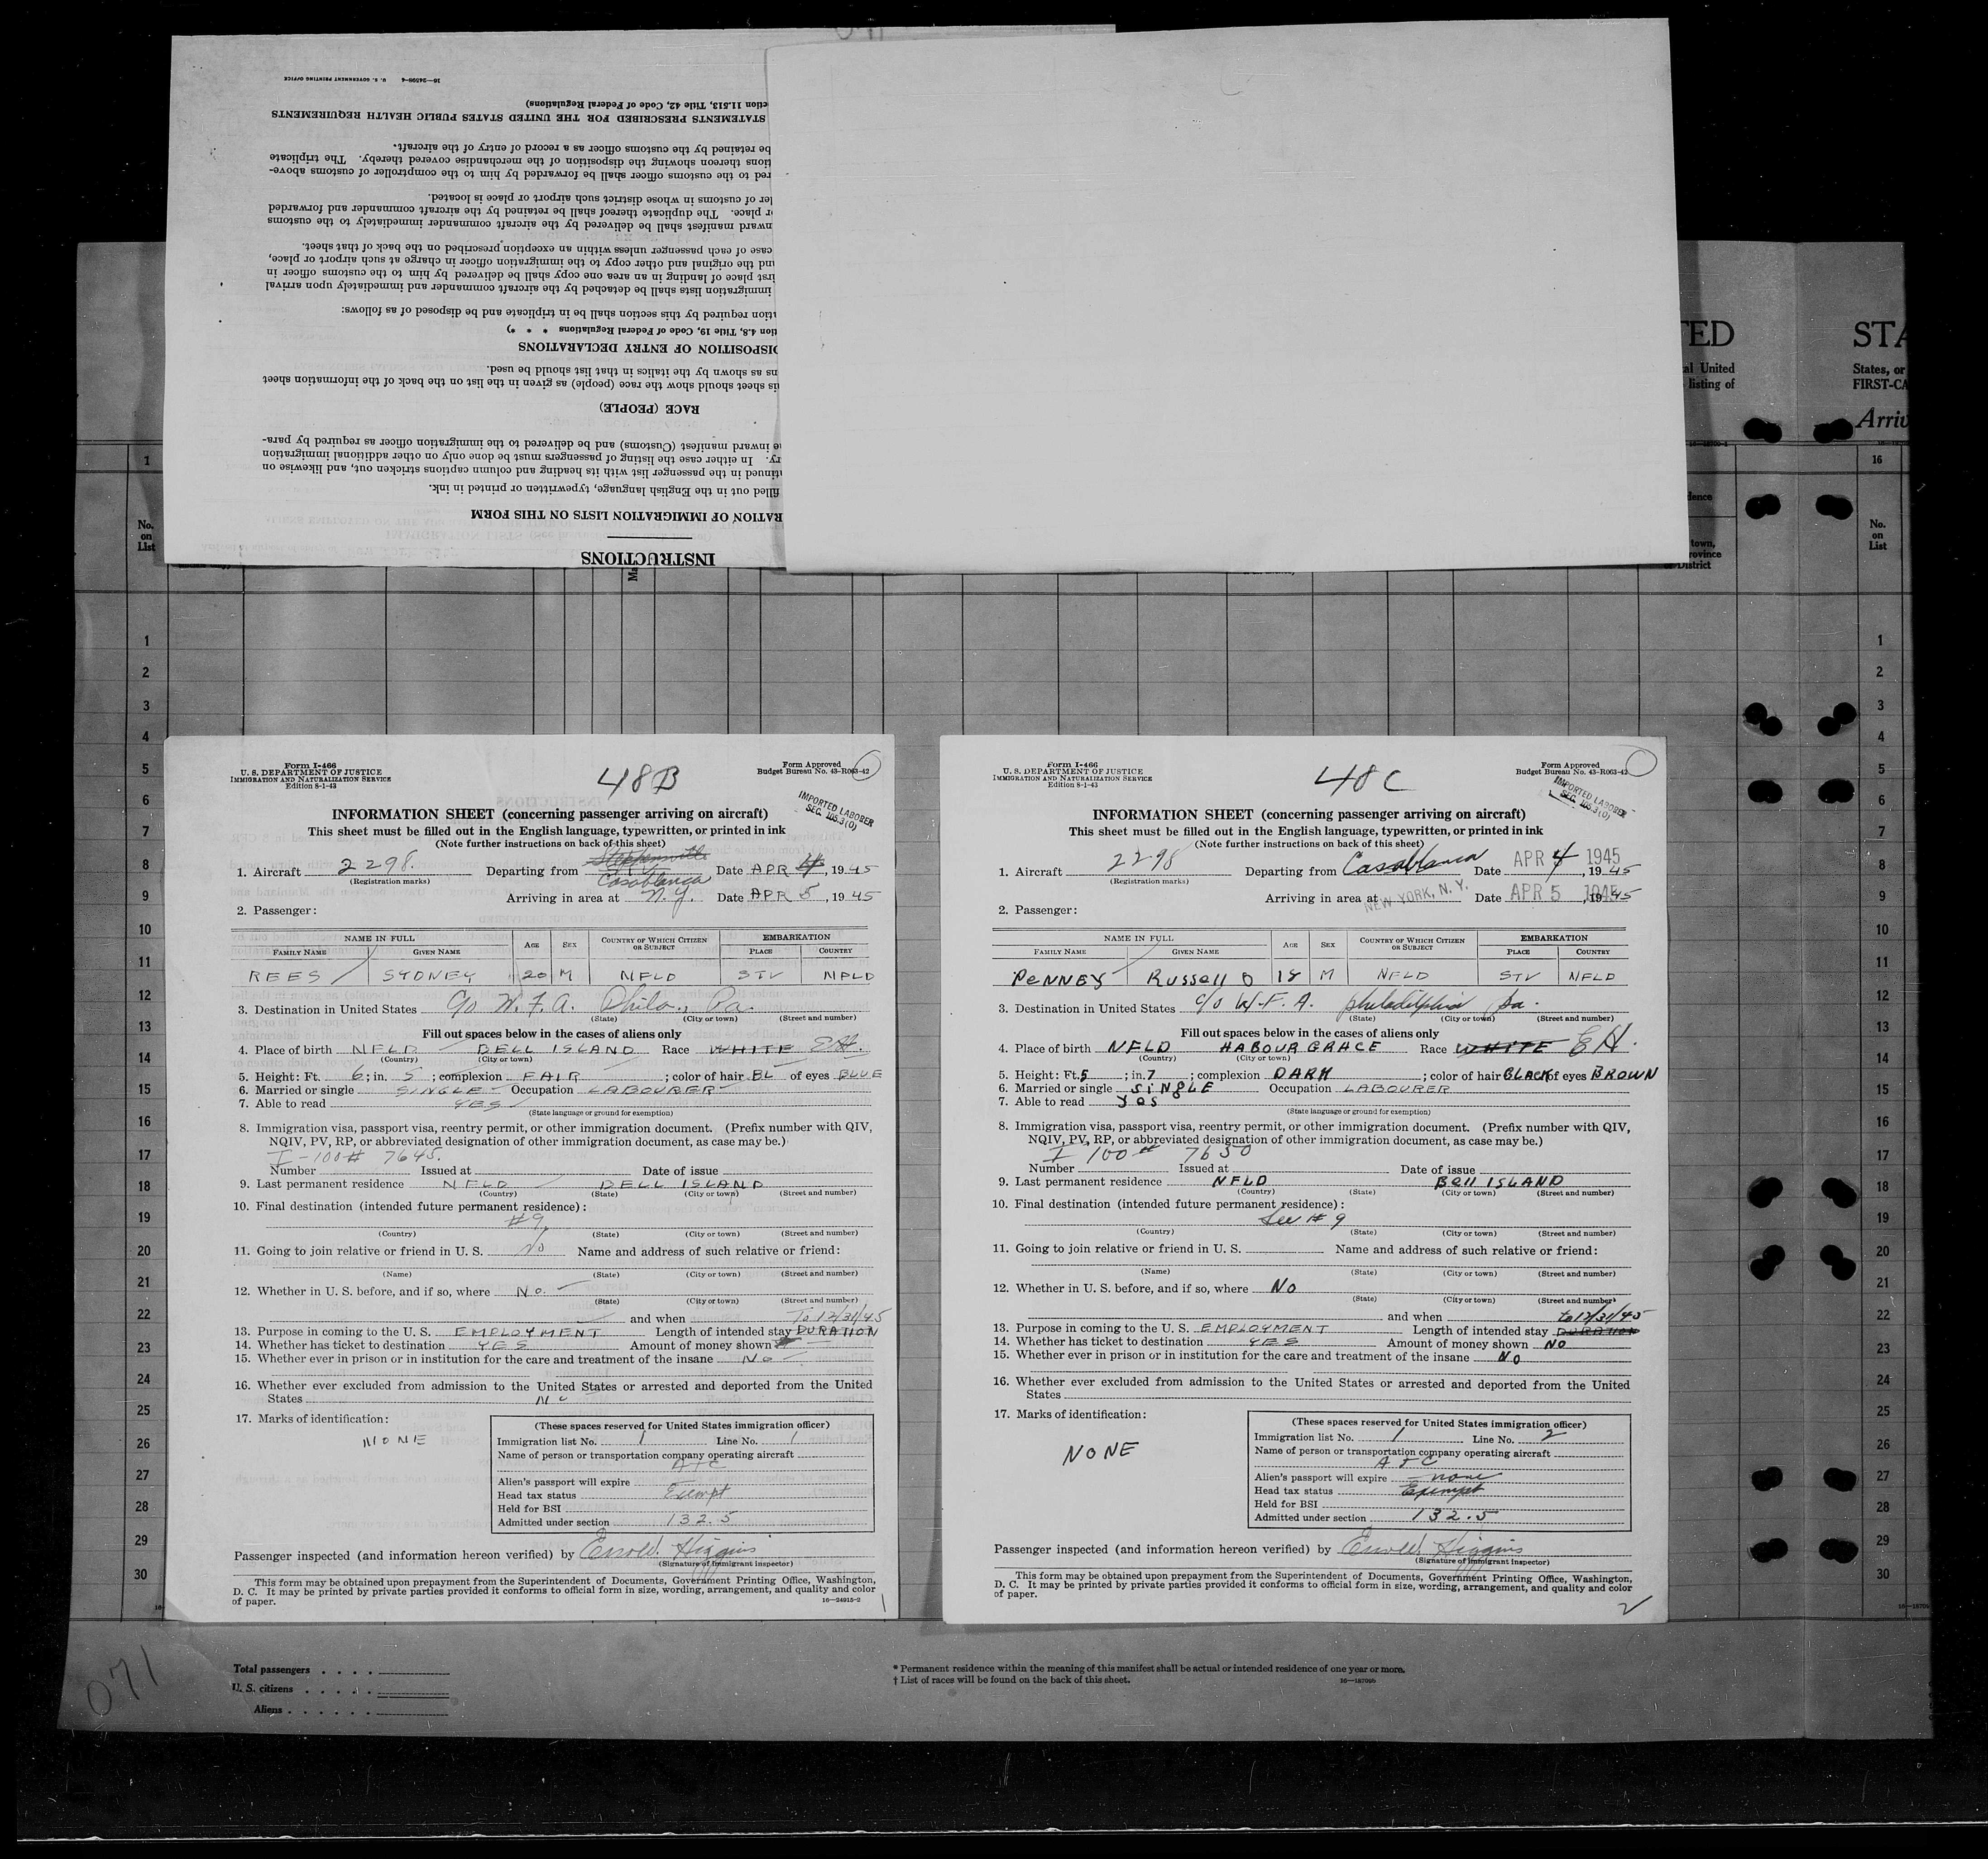 16—24598-4 U. S. GOVERNMENT PRINTING OFFICE
ction 11.513, Title 42, Code of Federal Regulations)
STATEMENTS PRESCRIBED FOR THE UNITED STATES PUBLIC HEALTH REQUIREMENTS
be retained by the customs officer as a record of entry of the aircraft.
tions thereon showing the disposition of the merchandise covered thereby. The triplicate
red to the customs officer shall be forwarded by him to the comptroller of customs above-
ler of customs in whose district such airport or place is located.
r place. The duplicate thereof shall be retained by the aircraft commander and forwarded
nward manifest shall be delivered by the aircraft commander immediately to the customs
case of each passenger unless within an exception prescribed on the back of that sheet.
und the original and other copy to the immigration officer in charge at such airport or place,
irst place of landing in an area one copy shall be delivered by him to the customs officer in
immigration lists shall be detached by the aircraft commander and immediately upon arrival
ation required by this section shall be in triplicate and be disposed of as follows:
tion 4.8, Title 19, Code of Federal Regulations * * *)
DISPOSITION OF ENTRY DECLARATIONS
ns as shown by the italics in that list should be used.
is sheet should show the race (people) as given in the list on the back of the information sheet
RACE (PEOPLE)
e inward manifest (Customs) and be delivered to the immigration officer as required by para-
ry. In either case the listing of passengers must be done only on other additional immigration
tinued in the passenger list with its heading and column captions stricken out, and likewise on
filled out in the English language, typewritten or printed in ink.
RATION OF IMMIGRATION LISTS ON THIS FORM
INSTRUCTIONS
TED STA
al United States, or
listing of FIRST-CA
Arriv
1 16
No. on List
town,
rovince
or District
No. on List
1 1
2 2
3 3
4 4
5 5
6 6
7 7
8 8
9 9
10 10
11 11
12 12
13 13
14 14
15 15
16 16
17 17
18 18
19 19
20 20
21 21
22 22
23 23
24 24
25 25
26 26
27 27
28 28
29 29
30 30
Form I-466
U. S. DEPARTMENT OF JUSTICE
IMMIGRATION AND NATURALIZATION SERVICE
Edition 8-1-43
48B
Form Approved
Budget Bureau No. 43-R063-42
IMPORTED LABORER
SEC. 105.3(O)
INFORMATION SHEET (concerning passenger arriving on aircraft)
This sheet must be filled out in the English language, typewritten, or printed in ink
(Note further instructions on back of this sheet)
Stephenville
1. Aircraft 2298. Departing from Casablanca Date APR 4, 1945
(Registration marks)
Arriving in area at N.Y. Date APR 5, 1945
2. Passenger:
NAME IN FULL AGE SEX COUNTRY OF WHICH CITIZEN OR SUBJECT EMBARKATION
FAMILY NAME GIVEN NAME PLACE COUNTRY
REES SYDNEY 20 M NFLD STV NFLD
3. Destination in United States c/o W. F. A. Phila., Pa.
(State) (City or town) (Street and number)
Fill out spaces below in the cases of aliens only
4. Place of birth NFLD BELL ISLAND Race WHITE EH.
(Country) (City or town)
5. Height: Ft. 6; in. 5; complexion FAIR; color of hair BL of eyes BLUE
6. Married or single SINGLE Occupation LABOURER
7. Able to read YES
(State language or ground for exemption)
8. Immigration visa, passport visa, reentry permit, or other immigration document. (Prefix number with QIV,
NQIV, PV, RP, or abbreviated designation of other immigration document, as case may be.)
I-100# 7645.
Number Issued at Date of issue
9. Last permanent residence NFLD BELL ISLAND
(Country) (State) (City or town) (Street and number)
10. Final destination (intended future permanent residence):
#9
(Country) (State) (City or town) (Street and number)
11. Going to join relative or friend in U. S. No Name and address of such relative or friend:
(Name) (State) (City or town) (Street and number)
12. Whether in U. S. before, and if so, where No.
(State) (City or town) (Street and number)
and when To 12/31/45
13. Purpose in coming to the U. S. EMPLOYMENT Length of intended stay DURATION
14. Whether has ticket to destination YES Amount of money shown
15. Whether ever in prison or in institution for the care and treatment of the insane No
16. Whether ever excluded from admission to the United States or arrested and deported from the United
States No
17. Marks of identification:
NONE
(These spaces reserved for United States immigration officer)
Immigration list No. 1 Line No. 1
Name of person or transportation company operating aircraft
ATC
Alien's passport will expire
Head tax status Exempt
Held for BSI
Admitted under section 132.5
Passenger inspected (and information hereon verified) by Errold Higgins
(Signature of immigrant inspector)
This form may be obtained upon prepayment from the Superintendent of Documents, Government Printing Office, Washington,
D. C. It may be printed by private parties provided it conforms to official form in size, wording, arrangement, and quality and color
of paper.
16—24915-2
1
Form I-466
U. S. DEPARTMENT OF JUSTICE
IMMIGRATION AND NATURALIZATION SERVICE
Edition 8-1-43
48C
Form Approved
Budget Bureau No. 43-R063-42
IMPORTED LABORER
SEC. 105.3(O)
INFORMATION SHEET (concerning passenger arriving on aircraft)
This sheet must be filled out in the English language, typewritten, or printed in ink
(Note further instructions on back of this sheet)
1. Aircraft 2298 Departing from Casablanca Date APR 4 1945, 1945
(Registration marks)
Arriving in area at NEW YORK, N. Y. Date APR 5 1945, 1945
2. Passenger:
NAME IN FULL AGE SEX COUNTRY OF WHICH CITIZEN OR SUBJECT EMBARKATION
FAMILY NAME GIVEN NAME PLACE COUNTRY
PENNEY Russell O 18 M NFLD STV NFLD
3. Destination in United States c/o W. F. A. philadelphia, pa.
(State) (City or town) (Street and number)
Fill out spaces below in the cases of aliens only
4. Place of birth NFLD HABOUR GRACE Race WHITE EH.
(Country) (City or town)
5. Height: Ft. 5; in. 7; complexion DARK; color of hair BLACK of eyes BROWN
6. Married or single SINGLE Occupation LABOURER
7. Able to read yes
(State language or ground for exemption)
8. Immigration visa, passport visa, reentry permit, or other immigration document. (Prefix number with QIV,
NQIV, PV, RP, or abbreviated designation of other immigration document, as case may be.)
I 100# 7650
Number Issued at Date of issue
9. Last permanent residence NFLD Bell ISLAND
(Country) (State) (City or town) (Street and number)
10. Final destination (intended future permanent residence):
See #9
(Country) (State) (City or town) (Street and number)
11. Going to join relative or friend in U. S. Name and address of such relative or friend:
(Name) (State) (City or town) (Street and number)
12. Whether in U. S. before, and if so, where No
(State) (City or town) (Street and number)
and when to 12/31/45
13. Purpose in coming to the U. S. EMPLOYMENT Length of intended stay DURATION
14. Whether has ticket to destination YES Amount of money shown NO
15. Whether ever in prison or in institution for the care and treatment of the insane NO
16. Whether ever excluded from admission to the United States or arrested and deported from the United
States
17. Marks of identification:
NONE
(These spaces reserved for United States immigration officer)
Immigration list No. 1 Line No. 2
Name of person or transportation company operating aircraft
ATC
Alien's passport will expire none
Head tax status Exempt
Held for BSI
Admitted under section 132.5
Passenger inspected (and information hereon verified) by Errold Higgins
(Signature of immigrant inspector)
This form may be obtained upon prepayment from the Superintendent of Documents, Government Printing Office, Washington,
D. C. It may be printed by private parties provided it conforms to official form in size, wording, arrangement, and quality and color
of paper.
2
071
Total passengers
U. S. citizens
Aliens
* Permanent residence within the meaning of this manifest shall be actual or intended residence of one year or more.
† List of races will be found on the back of this sheet.
16—18709b